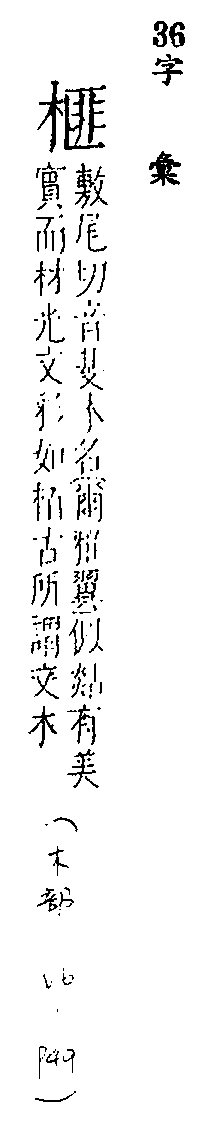 36字彙
榧
敷尾切音斐木名爾雅翼似煔有美
實而材光文彩如柏古所謂文木
(木部